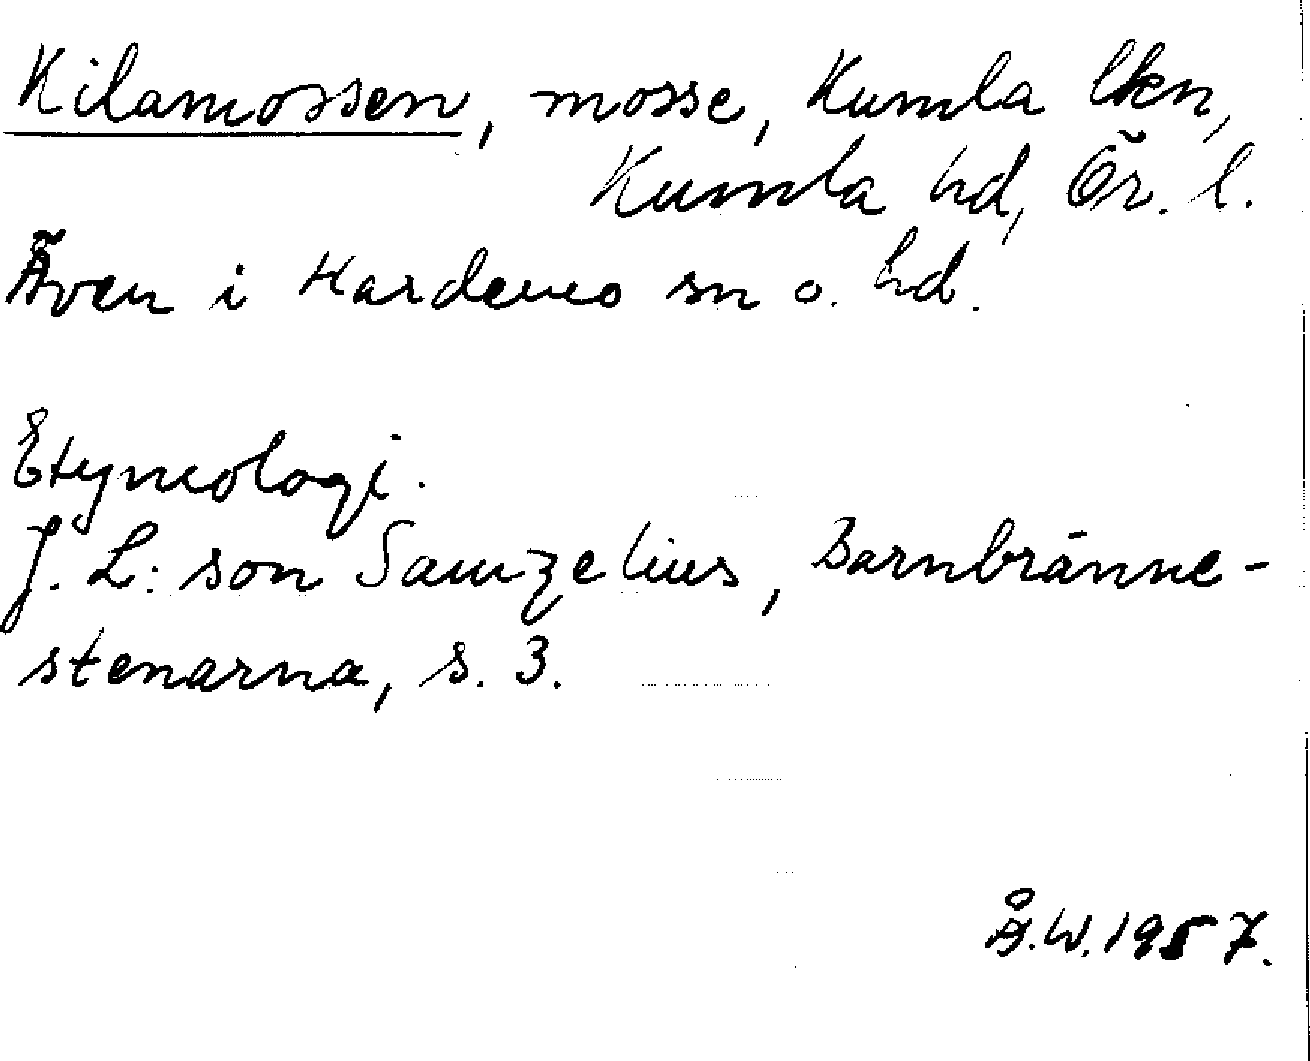 Kilamossen, mosse, Kumla lkn,
Kumla hd, Ör. l.
Även i Hardemo sn o. hd.
Etymologi.
J. L:son Samzelius, Barnbränne-
stenarna, s. 3.
Å.W. 1957.